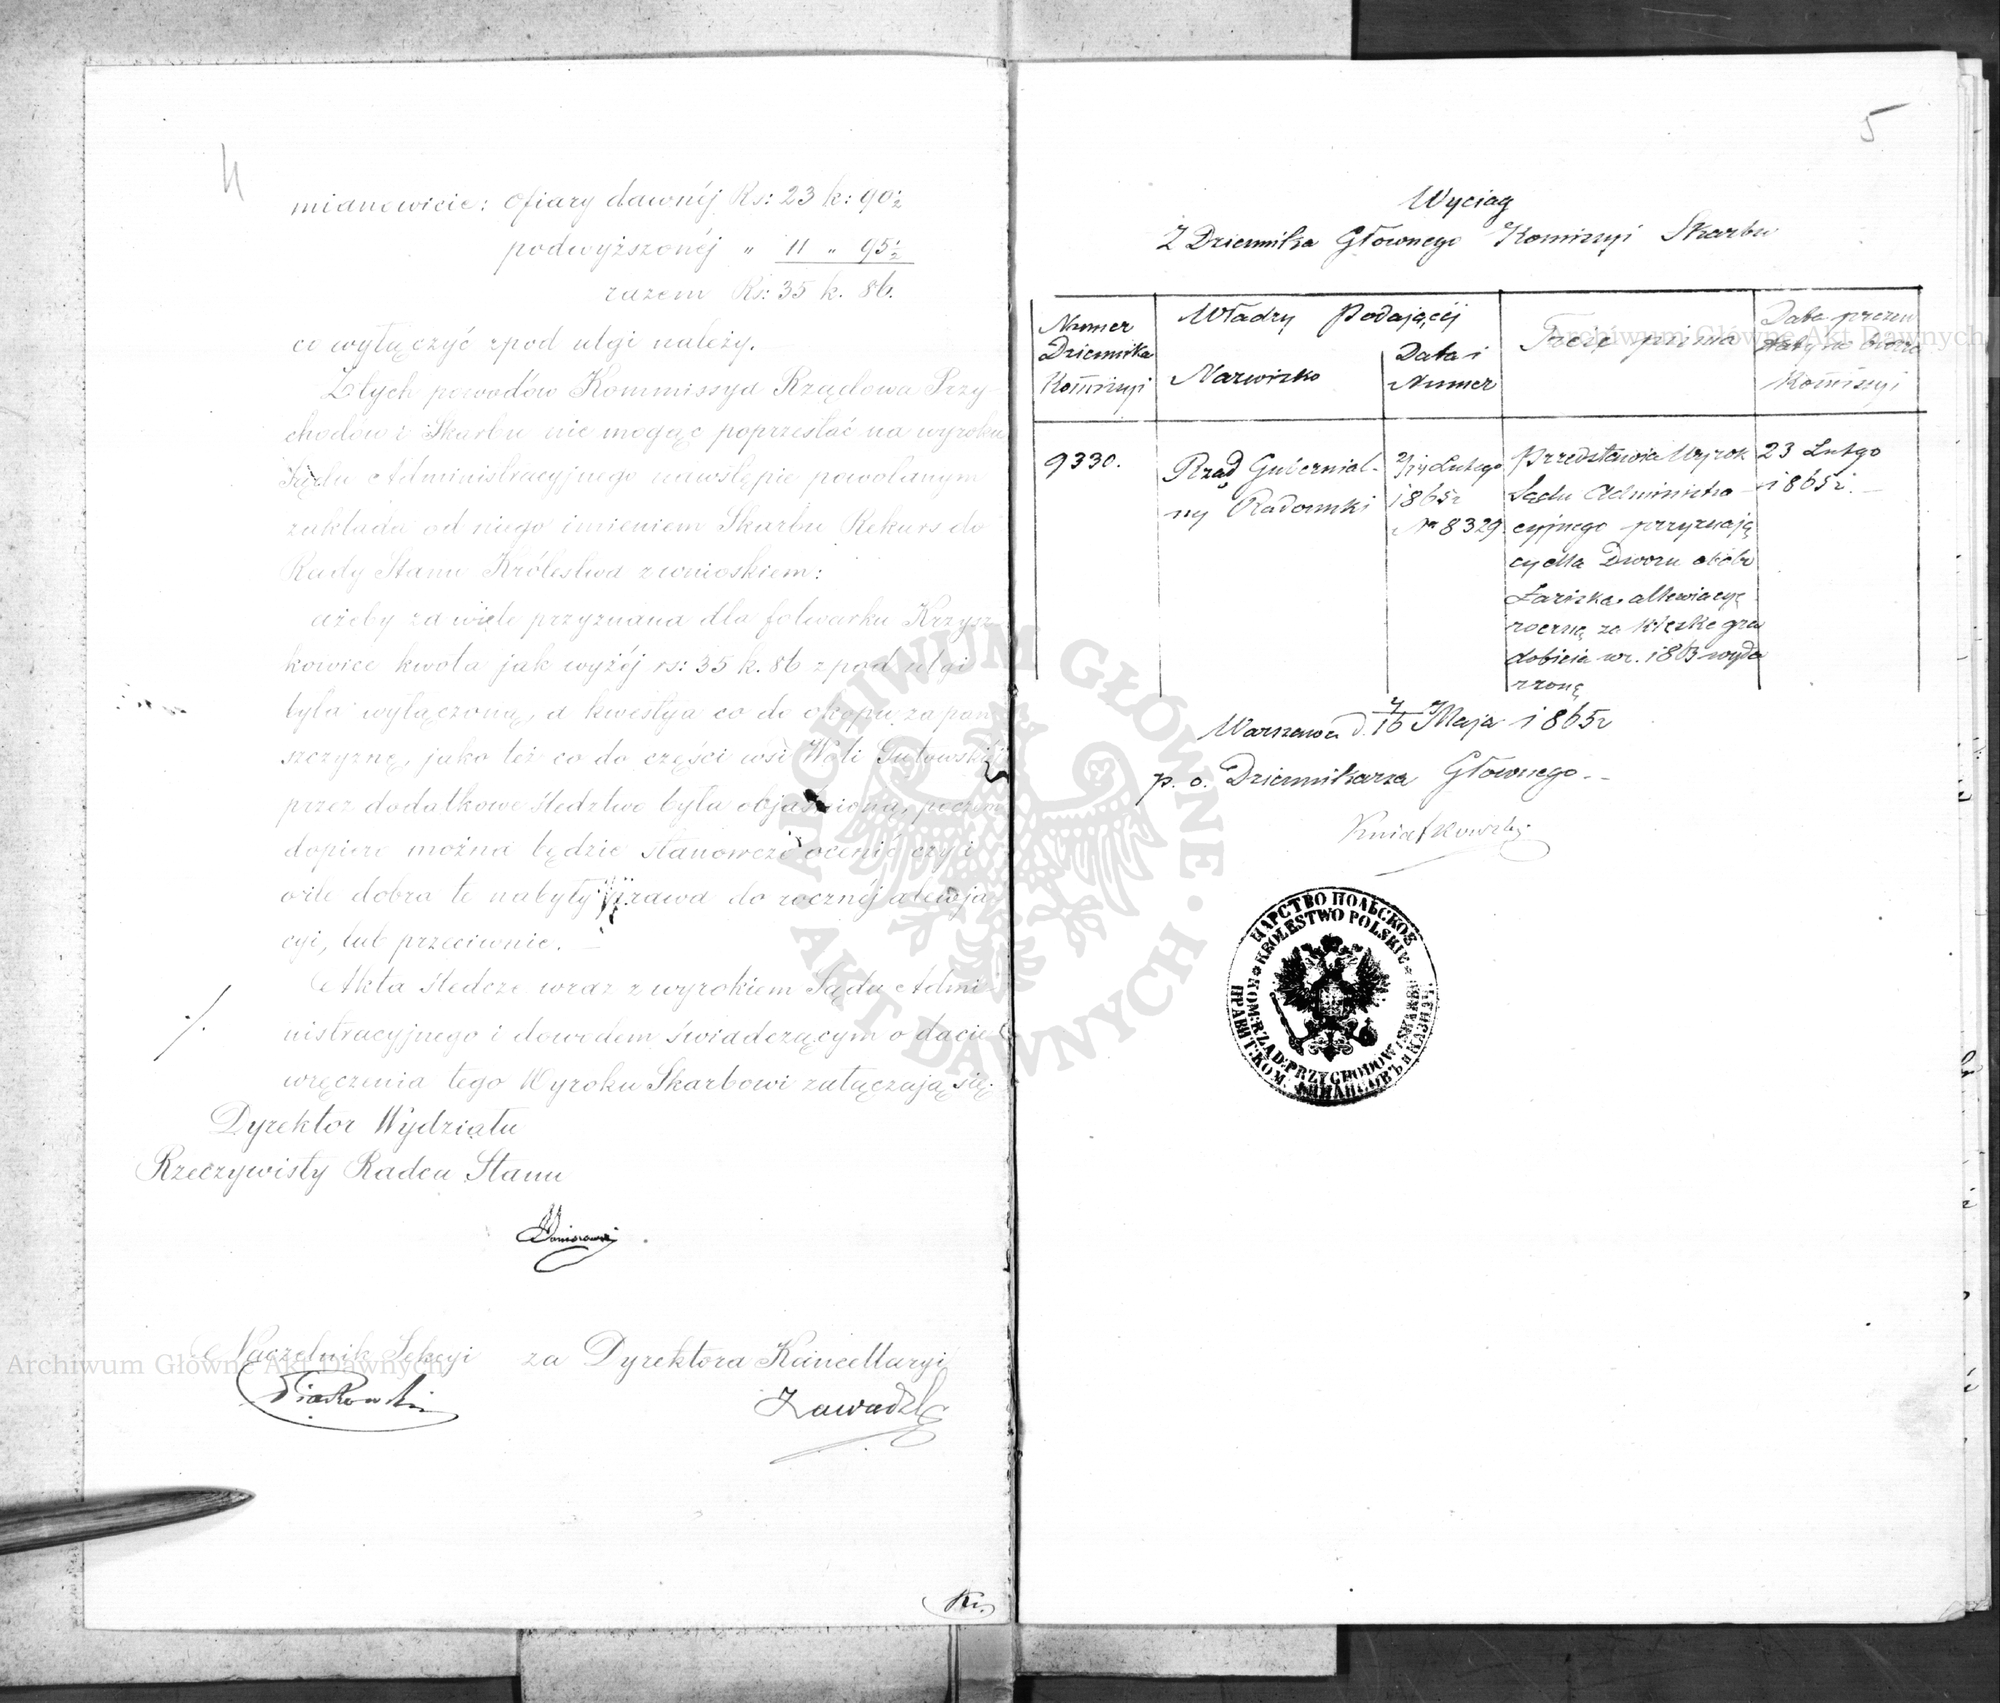 4
mianowicie: ofiary dawnéj Rs: 23 k: 90½
podwyższonéj " 11 " 95½
razem Rs: 35 k. 86.
co wyłączyć zpod ulgi należy.
Z tych powodów Kommissya Rządowa Przy-
chodów i Skarbu nie mogąc poprzestać na wyroku
Sądu Administracyjnego na wstępie powołanym
zakłada od niego imieniem Skarbu Rekurs do
Rady Stanu Królestwa z wnioskiem:
ażeby za wiele przyznana dla folwarku Krzysz-
kowice kwota jak wyżéj rs: 35 k. 86 z pod ulgi
była wyłączoną, a kwestya co do okopu za pań
szczyznę, jako też co do części wsi Woli Gutowskiéj
przez dodatkowe śledztwo była objaśnioną, poczem
dopiero można będzie stanowczo ocenić czy i
o ile dobra te nabyły prawa do rocznéj alewja
cyi, lub przeciwnie. —
Akta śledcze wraz z wyrokiem Sądu Admi-
nistracyjnego i dowodem świadczącym o dacie
wręczenia tego Wyroku Skarbowi załączają się.
Dyrektor Wydziału
Rzeczywisty Radca Stanu
Naczelnik Sekcyi za Dyrektora Kancellaryi
Piotrowski Zawadzki
Archiwum Główne Akt Dawnych
5
Wyciąg
Z Dziennika Głównego Kommissyi Skarbu
Numer
Dziennika
Kommissyi
Władzy Podającéj
Nazwisko
Data i
Numer
Treść pisma
Data prezen
taty na
Kommissyi
9330.
Rząd Gubernial-
ny Radomski
Lutego
1865 r
Nr 8329.
Przedstawia Wyrok
Sądu Administra-
cyjnego przyznają
cy dla Dworu dóbr
Łaziska, allewiacyę
roczną za klęskę gra
dobicia w r. 1863 wyda
rzoną
23 Lutego
1865 r. —
Warszawa d. 4/16 Maja 1865 r
p. o. Dziennikarza Głównego. —
Kwiatkowski
ЦАРСТВО ПОЛЬСКОЕ
KRÓLESTWO POLSKIE
KOM: RZĄD: PRZYCHODÓW I SKARBU
ПРАВИТ: КОМ: ФИНАНСОВЪ И КАЗНАЧ:
Archiwum Główne Akt Dawnych
ARCHIWUM GŁÓWNE · AKT DAWNYCH ·